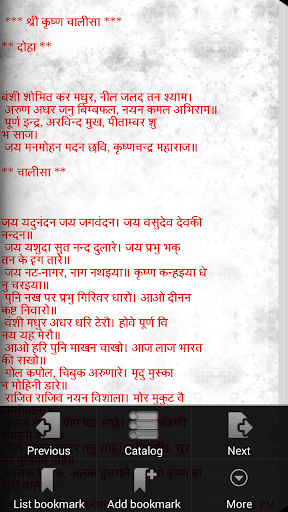 *** श्री कृष्ण चालीसा ***
** दोहा **
बंशी शोभित कर मधुर, नील जलद तन श्याम।
अरुण अधर जनु बिम्बफल, नयन कमल अभिराम॥
पूर्ण इन्द्र, अरविन्द मुख, पीताम्बर शु
भ साज।
जय मनमोहन मदन छवि, कृष्णचन्द्र महाराज॥
** चालीसा **
जय यदुनंदन जय जगवंदन। जय वसुदेव देवकी
नन्दन॥
जय यशुदा सुत नन्द दुलारे। जय प्रभु भक्
तन के दृग तारे॥
जय नट-नागर, नाग नथइया॥ कृष्ण कन्हइया धे
नु चरइया॥
पुनि नख पर प्रभु गिरिवर धारो। आओ दीनन
कष्ट निवारो॥
वंशी मधुर अधर धरि टेरौ। होवे पूर्ण वि
नय यह मेरौ॥
आओ हरि पुनि माखन चाखो। आज लाज भारत
की राखो॥
गोल कपोल, चिबुक अरुणारे। मृदु मुस्का
न मोहिनी डारे॥
राजित राजिव नयन विशाला। मोर मुकुट वै
Previous
Catalog
Next
List bookmark
Add bookmark
More